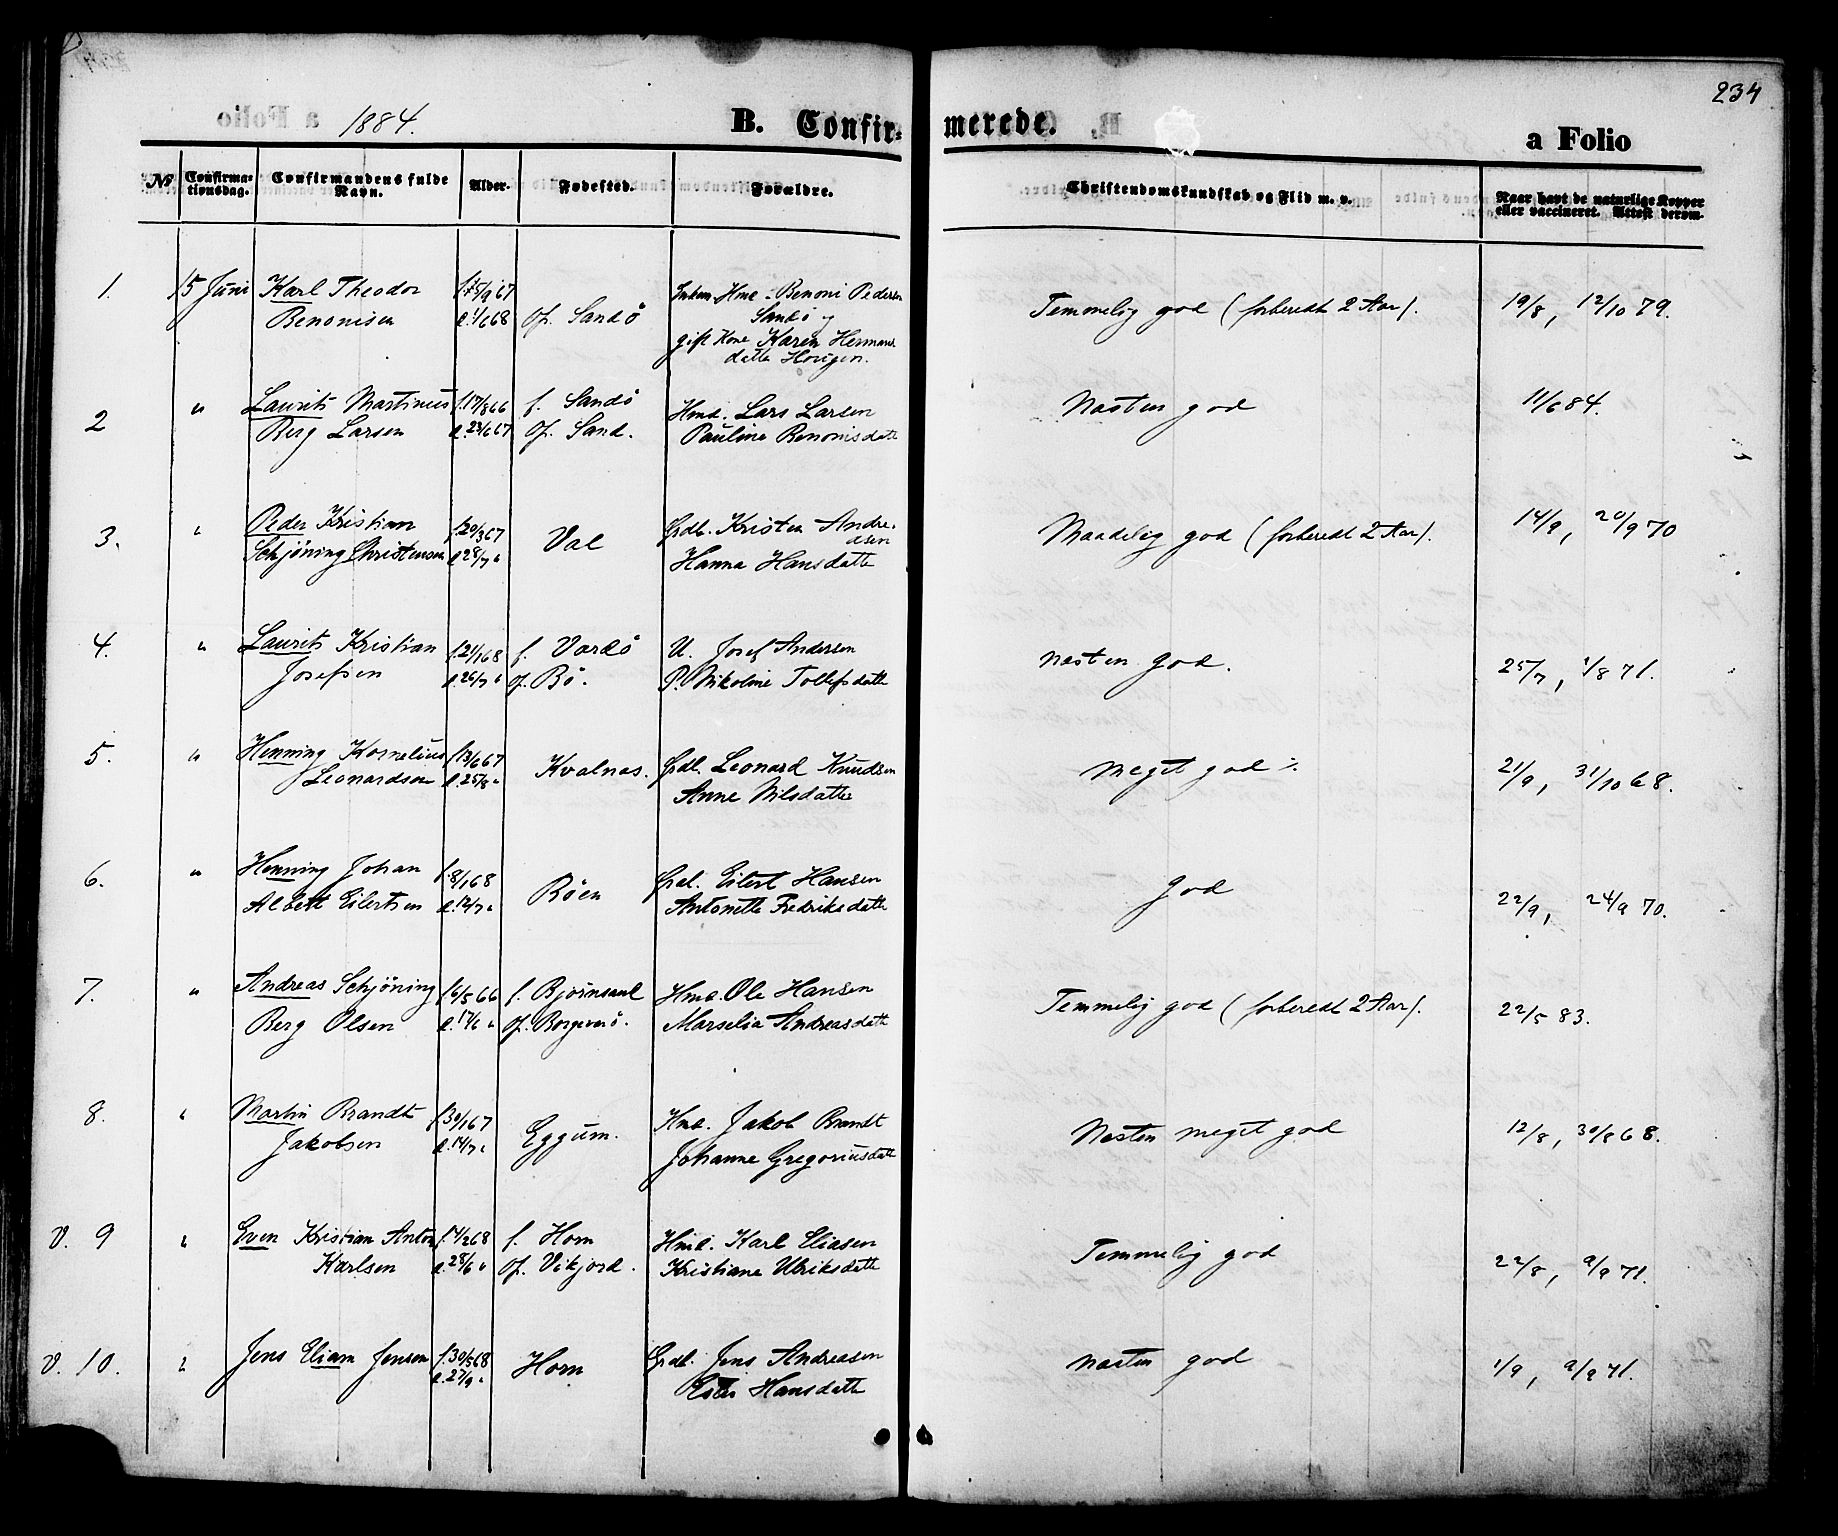 234
1884.
B. Confir-
merede.
a Folio
№
Confirma-
tionsdag.
Confirmandens fulde
Navn.
Alder.
Fødested.
Forældre.
Christendomskundskab og Flid m. v.
Naar havt de naturlige Kopper
eller vaccineret. Attest derom.
1. 15 Juni Karl Theodor
Benonisen
f. 15/9 67
d. 1/6 68
Of. Sandö
Hmd: Benoni Pedersen
Sandö og
gift Kone Karen Hermans
datter Hougen.
Temmelig god (forberedt 2 Aar).
19/8, 12/10 79.
2 " Laurits Martinus
Berg Larsen
f. 17/8 66
d. 23/6 67
f. Sandö
of. Sand.
Hmd. Lars Larsen
Pauline Benonisdatt
Næsten god
11/6 84.
3. " Peder Kristian
Schjöning Christensen
f. 20/3 67
d. 28/7 "
Val
Grdb. Kristen Andre-
asen
Hanna Hansdatte
Maadelig god (forberedt 2 Aar).
14/9, 20/9 70
4. " Laurits Kristian
Josefsen
f. 21/1 68
d. 26/7 "
f. Vardö
of. Bö.
U. Josef Andersen
P. Nikoline Tollefsdatte
næsten god.
25/7, 1/8 71.
5. " Henning Kornelius
Leonardsen
f. 13/6 67
d. 25/8 "
Kvalnæs.
Grdb. Leonard Knudsen
Anne Nilsdatte
Meget god ٪
21/9, 31/10 68.
6. " Henning Johan
Albert Eilertsen
f. 8/1 68
d. 12/7 "
Böen
Grdb. Eilert Hansen
Antonette Fredriksdatte
God
22/9, 24/9 70.
7. " Andreas Schjöning
Berg Olsen
f. 6/5 66
d. 17/6 "
f. Björnsand
of. Borgevær.
Hmd. Ole Hansen
Marselia Andreasdatt
Temmelig god (forberedt 2 Aar).
22/5 83.
8. " Martin Brandt
Jakobsen
f. 30/1 67
d. 14/7 "
Eggum.
Hmd. Jakob Brandt
Johanne Gregoriusdatt
Næsten meget god
12/8, 30/8 68.
V. 9 " Even Kristian Anton
Karlsen
f. 14/2 68
d. 28/6 "
f. Horn
of. Vikjord.
Hmd. Karl Eliasen
Kristiane Ulriksdatte
Temmelig god
22/8, 9/9 71.
V. 10. " Jens Eliam Jensen
f. 30/5 68
d. 27/9 "
Horn
Grdb. Jens Andreasen
Ester Hansdatte
næsten god
1/9, 9/9 71.